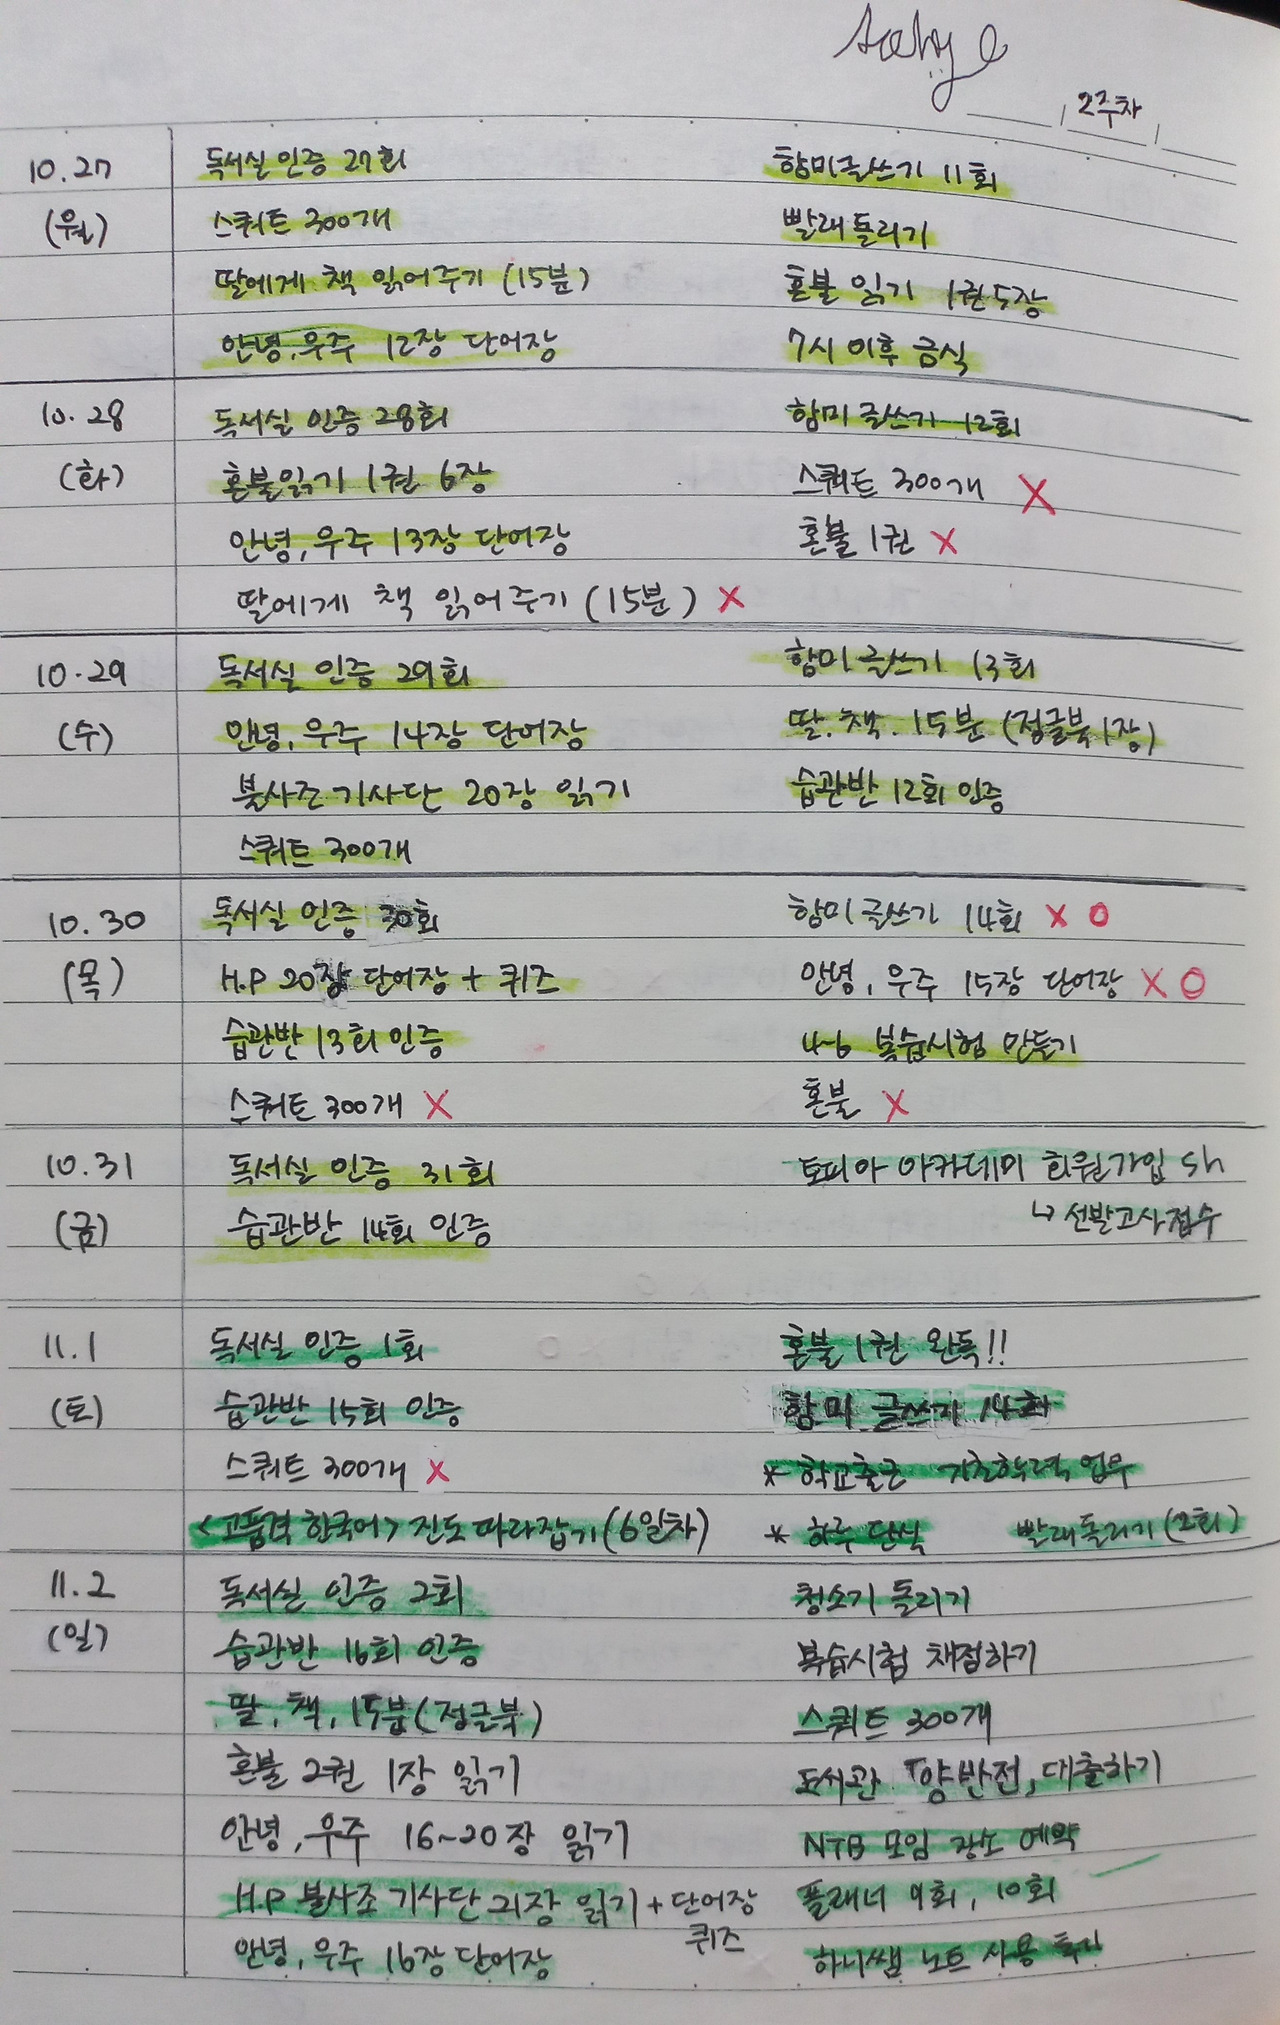 2주차
10.27 독서실 인증 27회 함미글쓰기 11회
(월) 스쿼트 300개 빨래 돌리기
딸에게 책 읽어주기 (15분) 혼불 읽기 1권 5장
안녕, 우주 12장 단어장 7시 이후 금식
10.28 독서실 인증 28회 함미 글쓰기 12회
(화) 혼불읽기 1권 6장 스쿼트 300개 X
안녕, 우주 13장 단어장 혼불 1권 X
딸에게 책 읽어주기 (15분) X
10.29 독서실 인증 29회 함미 글쓰기 13회
(수) 안녕, 우주 14장 단어장 딸. 책. 15분 (정글북 1장)
불사조 기사단 20장 읽기 습관반 12회 인증
스쿼트 300개
10.30 독서실 인증 30회 함미 글쓰기 14회 X O
(목) H.P 20장 단어장 + 퀴즈 안녕, 우주 15장 단어장 X O
습관반 13회 인증 4-6 복습시험 만들기
스쿼트 300개 X 혼불 X
10.31 독서실 인증 31회 토피아 아카데미 회원가입 sh
(금) 습관반 14회 인증 ↳ 선발고사 접수
11.1 독서실 인증 1회 혼불 1권 완독!!
(토) 습관반 15회 인증 함미 글쓰기 14회
스쿼트 300개 X * 학교출근 기초학력 업무
<고품격 한국어> 진도 따라잡기 (6일차) * 하루 단식 빨래돌리기 (2회)
11.2 독서실 인증 2회 청소기 돌리기
(일) 습관반 16회 인증 복습시험 채점하기
딸, 책, 15분 (정글북) 스쿼트 300개
혼불 2권 1장 읽기 도서관 「양반전」 대출하기
안녕, 우주 16~20장 읽기 NTB 모임 장소 예약
H.P 불사조 기사단 21장 읽기 + 단어장 플래너 9회, 10회
퀴즈
안녕, 우주 16장 단어장 하니쌤 노트 사용